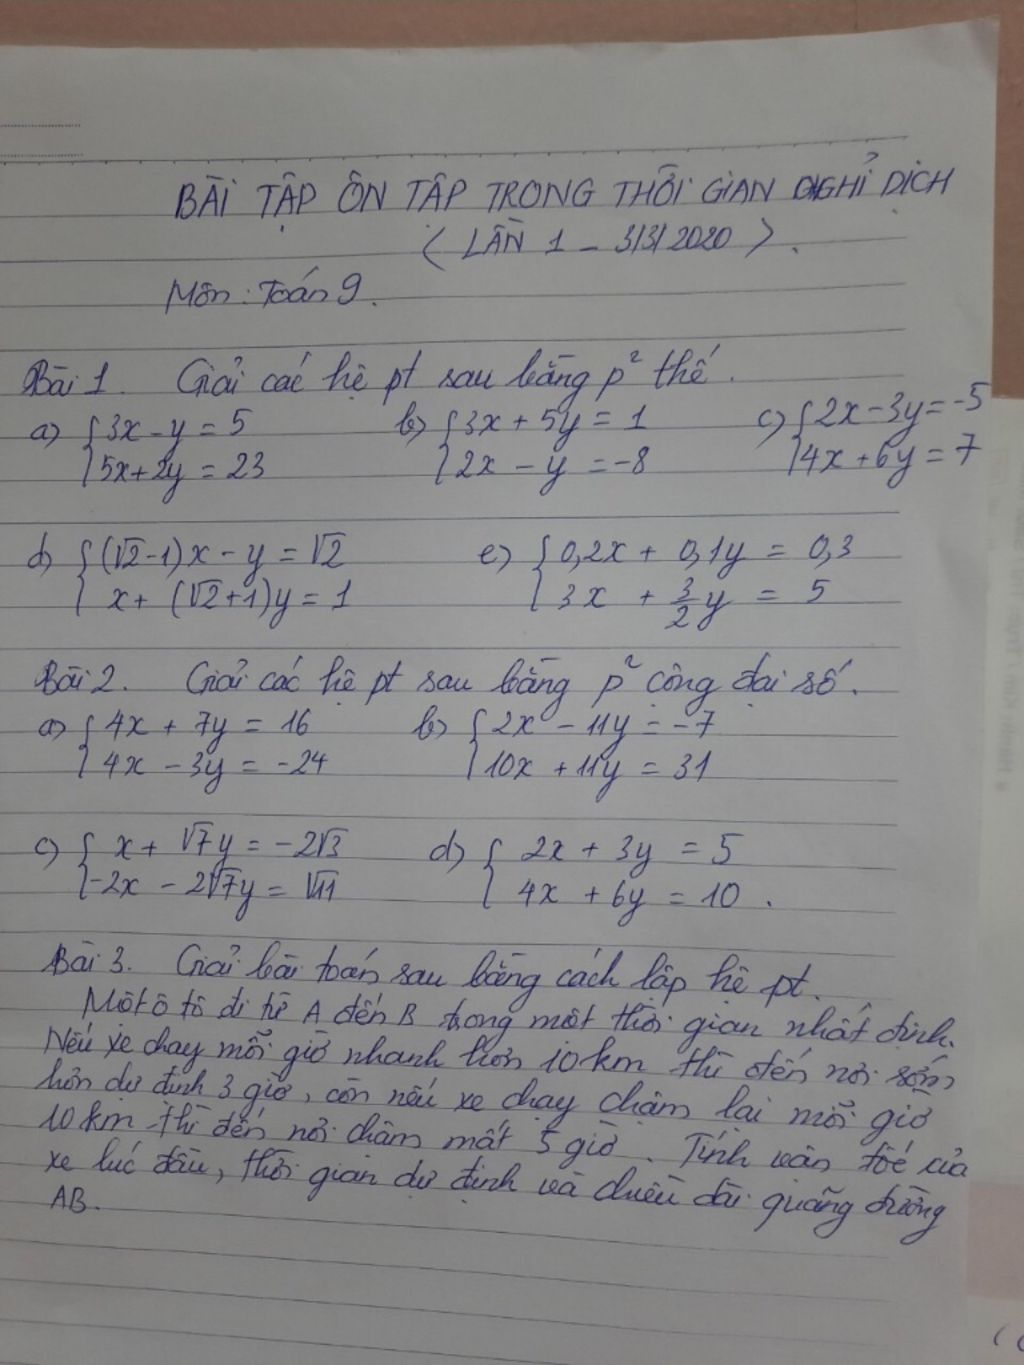 BÀI TẬP ÔN TẬP TRONG THỜI GIAN NGHỈ DỊCH
( LẦN 1 - 3/3/2020 ).
Môn: Toán 9.
Bài 1. Giải các hệ pt sau bằng p² thế.
a) { 3x - y = 5 b) { 3x + 5y = 1 c) { 2x - 3y = -5
5x + 2y = 23 2x - y = -8 4x + 6y = 7
d) { (√2-1)x - y = √2 e) { 0,2x + 0,1y = 0,3
x + (√2+1)y = 1 3x + 3/2 y = 5
Bài 2. Giải các hệ pt sau bằng p² cộng đại số.
a) { 4x + 7y = 16 b) { 2x - 11y = -7
4x - 3y = -24 10x + 11y = 31
c) { x + √7y = -2√3 d) { 2x + 3y = 5
-2x - 2√7y = √11 4x + 6y = 10 .
Bài 3. Giải bài toán sau bằng cách lập hệ pt.
Một ô tô đi từ A đến B trong một thời gian nhất định.
Nếu xe chạy mỗi giờ nhanh hơn 10km thì đến nơi sớm
hơn dự định 3 giờ, còn nếu xe chạy chậm lại mỗi giờ
10km thì đến nơi chậm mất 5 giờ. Tính vận tốc của
xe lúc đầu, thời gian dự định và chiều dài quãng đường
AB.